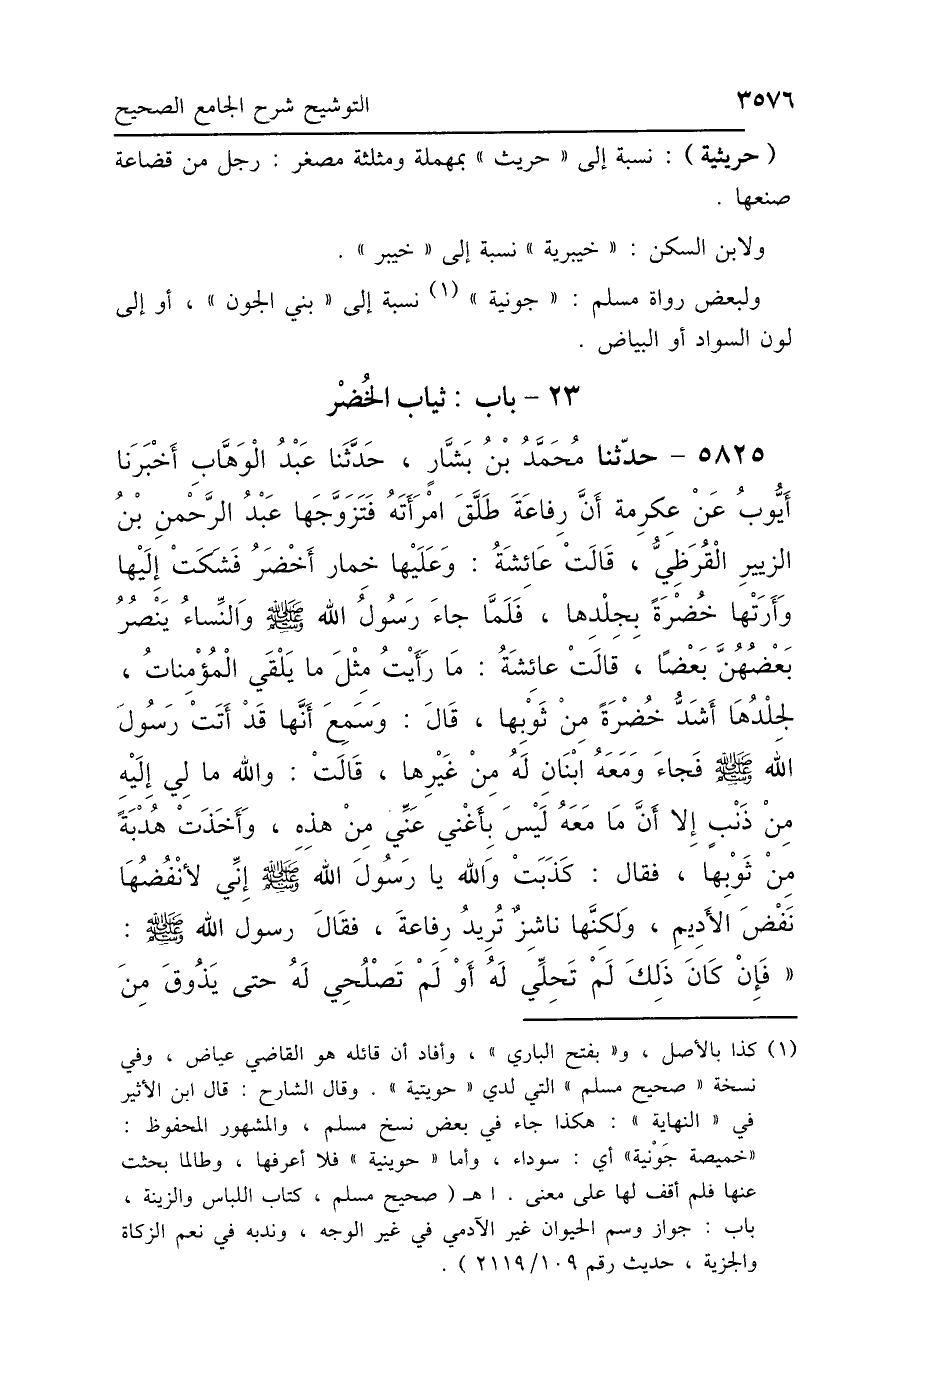 ٣٥٧٦ التوشيح شرح الجامع الصحيح
( حريثية ) : نسبة إلى « حريث » بمهملة ومثلثة مصغر : رجل من قضاعة
صنعها .
ولابن السكن : « خيبرية » نسبة إلى « خيبر » .
ولبعض رواة مسلم : « جونية » (١) نسبة إلى « بني الجون » ، أو إلى
لون السواد أو البياض .
٢٣ - باب : ثياب الخُضْر
٥٨٢٥ - حدّثنا مُحَمَّدُ بْنُ بَشَّارٍ ، حَدَّثَنا عَبْدُ الْوَهَّابِ أَخْبَرَنا
أَيُّوبُ عَنْ عِكرِمة أَنَّ رِفاعَةَ طَلَّقَ امْرأَتَهُ فَتَزَوَّجَها عَبْدُ الرَّحْمنِ بْنُ
الزبيرِ الْقُرَظِيُّ ، قَالَتْ عَائشَةُ : وَعَلَيْها خمار أَخْضَرُ فَشكَتْ إِلَيْها
وَأَرَتْها خُضْرَةً بِجِلْدِها ، فَلَمَّا جاءَ رَسُولُ الله ﷺ وَالنِّساءُ يَنْصُرُ
بَعْضُهُنَّ بَعْضًا ، قالَتْ عائشَةُ : مَا رَأَيْتُ مِثْلَ ما يَلْقَي الْمُؤْمناتُ ،
لَجِلْدُهَا أَشَدُّ خُضْرَةً مِنْ ثَوْبِها ، قَالَ : وَسَمِعَ أَنَّها قَدْ أَتَتْ رَسُولَ
الله ﷺ فَجاءَ وَمَعَهُ ابْنَانِ لَهُ مِنْ غَيْرِها ، قَالَتْ : والله ما لي إِلَيْهِ
مِنْ ذَنْبٍ إلا أَنَّ مَا مَعَهُ لَيْسَ بِأَغْني عَنِّي مِنْ هذِهِ ، وَأَخَذَتْ هُدْبَةً
مِنْ ثَوْبِها ، فقال : كَذَبَتْ وَالله يا رَسُولَ الله ﷺ إِنِّي لأنْفُضُهَا
نَفْضَ الأَدِيمِ ، وَلَكِنَّها ناشِزٌ تُرِيدُ رِفاعَةَ ، فقَالَ رسول الله ﷺ :
« فَإِنْ كَانَ ذَلِكَ لَمْ تَحِلِّي لَهُ أَوْ لَمْ تَصْلُحِي لَهُ حتى يَذُوقَ مِنَ
(١) كذا بالأصل ، و« بفتح الباري » ، وأفاد أن قائله هو القاضي عياض ، وفي
نسخة « صحيح مسلم » التي لدي « حويتية » . وقال الشارح : قال ابن الأثير
في « النهاية » : هكذا جاء في بعض نسخ مسلم ، والمشهور المحفوظ :
«خميصة جَوْنية» أي : سوداء ، وأما « حوينية » فلا أعرفها ، وطالما بحثت
عنها فلم أقف لها على معنى . ا هـ ( صحيح مسلم ، كتاب اللباس والزينة ،
باب : جواز وسم الحيوان غير الآدمي في غير الوجه ، وندبه في نعم الزكاة
والجزية ، حديث رقم ٢١١٩/١٠٩ ) .